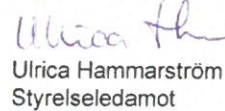 Ulrica Hammarström
Styrelseledamot